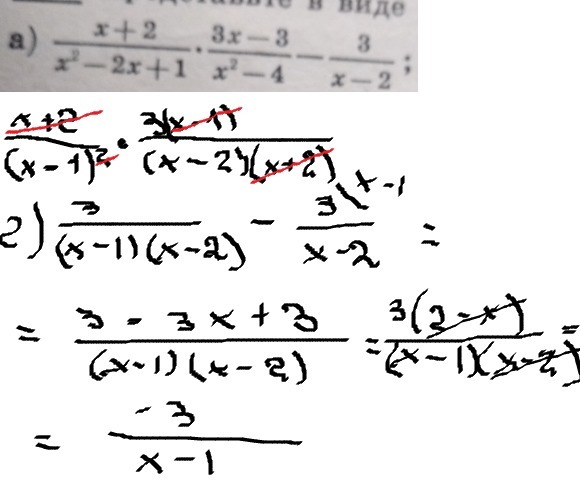 представьте в виде
а) (x + 2)/(x² − 2x + 1) · (3x − 3)/(x² − 4) − 3/(x − 2);
(x + 2)/(x − 1)² · 3(x − 1)/((x − 2)(x + 2))
2) 3/((x − 1)(x − 2)) − 3\x − 1/(x − 2) =
= (3 − 3x + 3)/((x − 1)(x − 2)) = 3(2 − x)/((x − 1)(x − 2)) =
= −3/(x − 1)